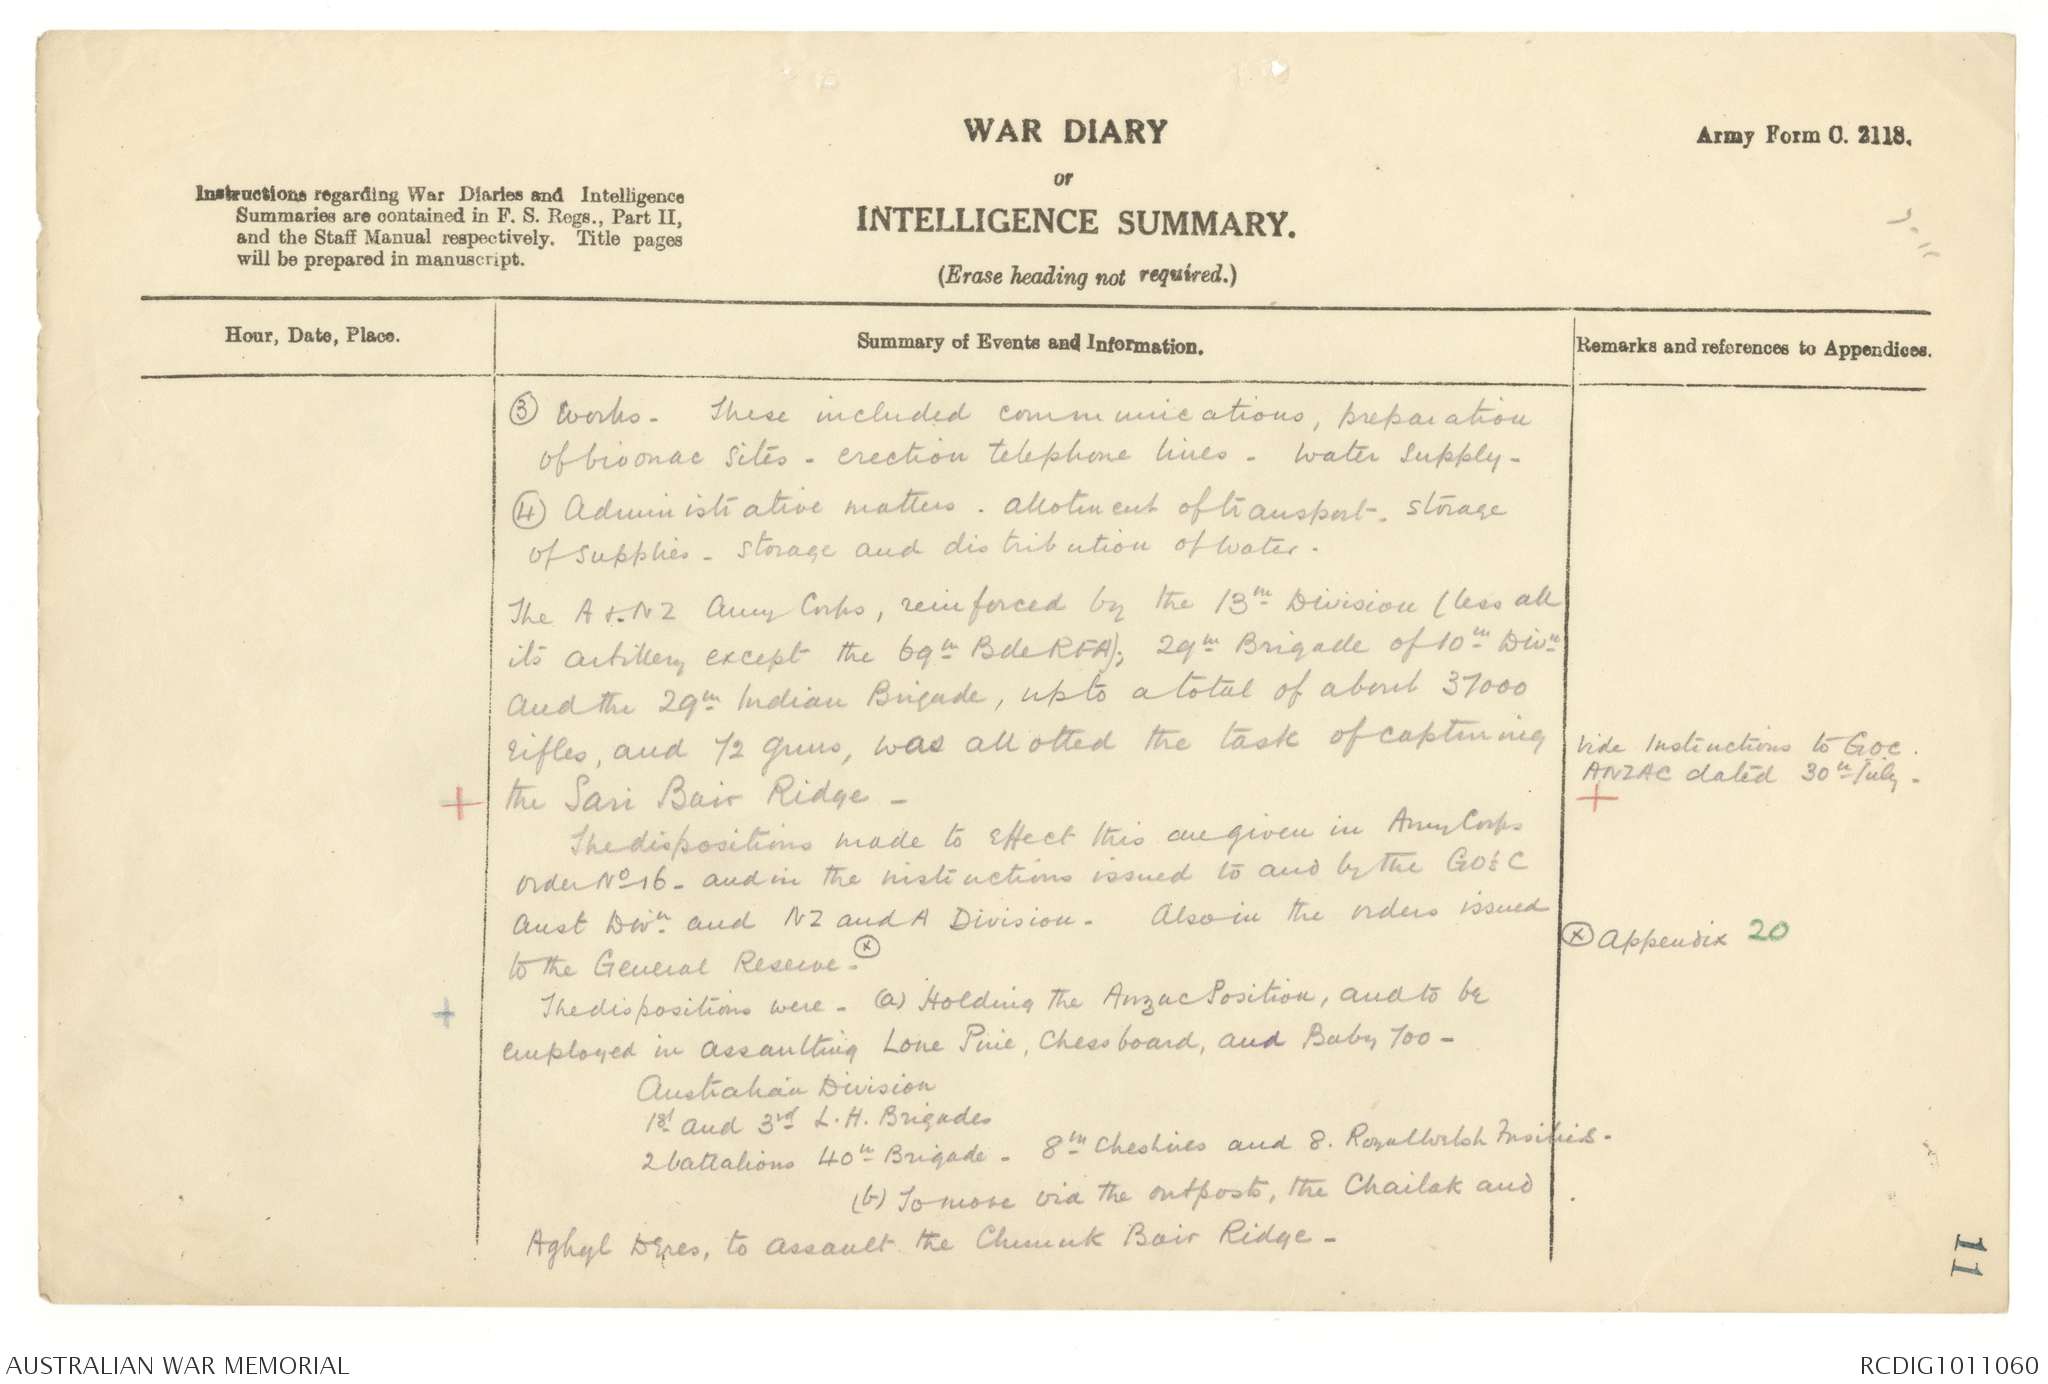 WAR DIARY
or
INTELLIGENCE SUMMARY.
(Erase heading not required.)
Army Form C. 2118.
Instructions regarding War Diaries and Intelligence
Summaries are contained in F. S. Regs., Part II,
and the Staff Manual respectively. Title pages
will be prepared in manuscript.
Hour, Date, Place.
Summary of Events and Information.
Remarks and references to Appendices.
(3) Works - These included communications, preparation
of bivouac sites - erection telephone lines - Water supply -
(4) Administrative matters. allotment of transport. storage
of supplies - storage and distribution of water.
The A & NZ Army Corps, reinforced by the 13th Division (less all
its artillery except the 69th Bde RFA); 29th Brigade of 10th Divn
and the 29th Indian Brigade, up to a total of about 37000
rifles, and 72 guns, was allotted the task of capturing
the Sari Bair Ridge -
Vide Instructions to GOC.
ANZAC dated 30th July -
+
+
The dispositions made to effect this are given in Army Corps
order No 16 - and in the instructions issued to and by the GOsC
Aust Divn and NZ and A Division - Also in the orders issued
to the General Reserve - (x)
(x) Appendix 20
The dispositions were - (a) Holding the Anzac Position, and to be
+
employed in assaulting Lone Pine, Chessboard, and Baby 700 -
Australian Division
1st and 3rd L.H. Brigades
2 battalions 40th Brigade - 8th Cheshires and 8. Royal Welsh Fusiliers -
(b) To move via the outposts, the Chailak and
Aghyl Deres, to assault the Chunuk Bair Ridge -
11
AUSTRALIAN WAR MEMORIAL
RCDIG1011060